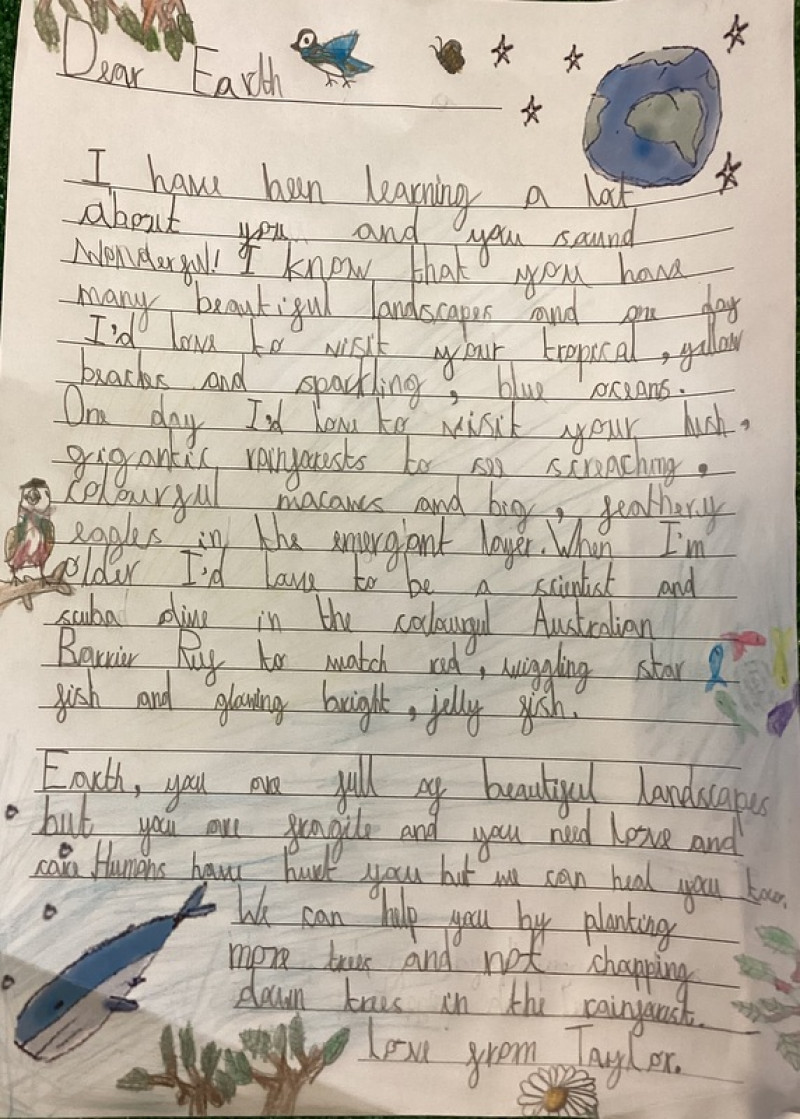 Dear Earth
I have been learning a lot
about you and you sound
Wonderful! I know that you have
many beautiful landscapes and one day
I'd love to visit your tropical, yellow
beaches and sparkling, blue oceans.
One day I'd love to visit your lush,
gigantic rainforests to see screaching,
colourful macaws and big, feathery
eagles in the emergant layer. When I'm
older I'd love to be a scientist and
scuba dive in the colourful Australian
Barrier Rif to watch red, wiggling star
fish and glowing bright, jelly fish.
Earth, you are full of beautiful landscapes
but you are fragile and you need love and
care. Humans have hurt you but we can heal you too.
We can help you by planting
more trees and not chopping
down trees in the rainforest.
Love from Taylor.